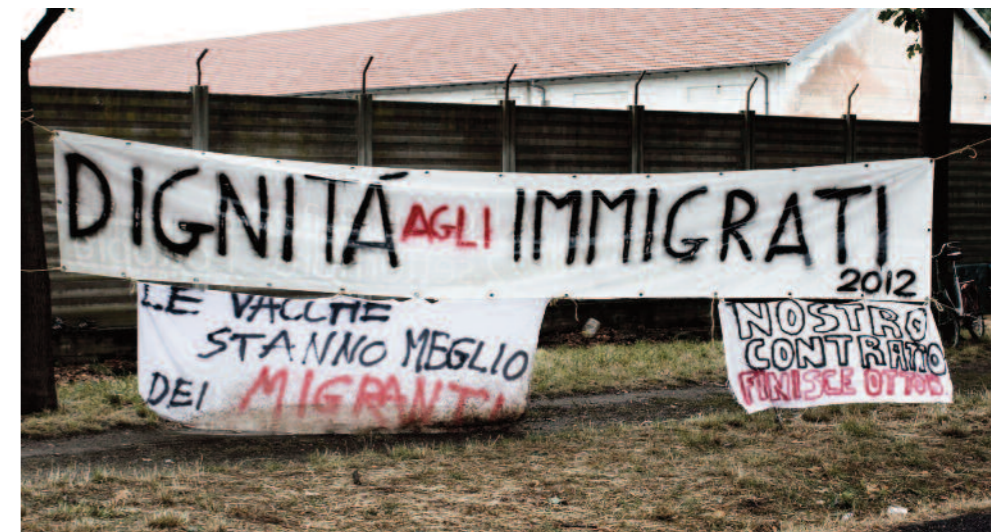 DIGNITÁ AGLI IMMIGRATI
2012
LE VACCHE
STANNO MEGLIO
DEI MIGRANTI
NOSTRO
CONTRATTO
FINISCE